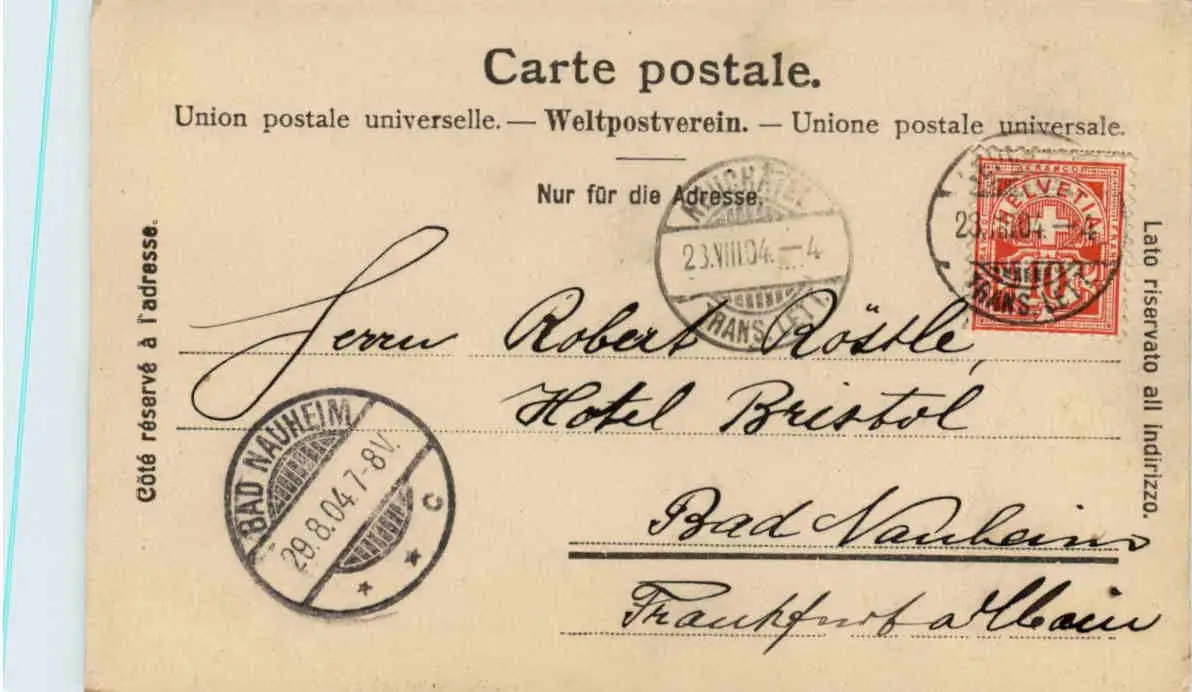 Carte postale.
Union postale universelle. — Weltpostverein. — Unione postale universale.
Nur für die Adresse.
Côté réservé à l'adresse.
Lato riservato all indirizzo.
NEUCHATEL
23.VIII.04.–4
TRANS. LETT.
HELVETIA
10
23.VIII.04.–4
TRANS. LETT.
Herrn Robert Röstle,
Hotel Bristol
Bad Nauheim
Frankfurt a Main
BAD NAUHEIM
29.8.04.7-8V.
* * C